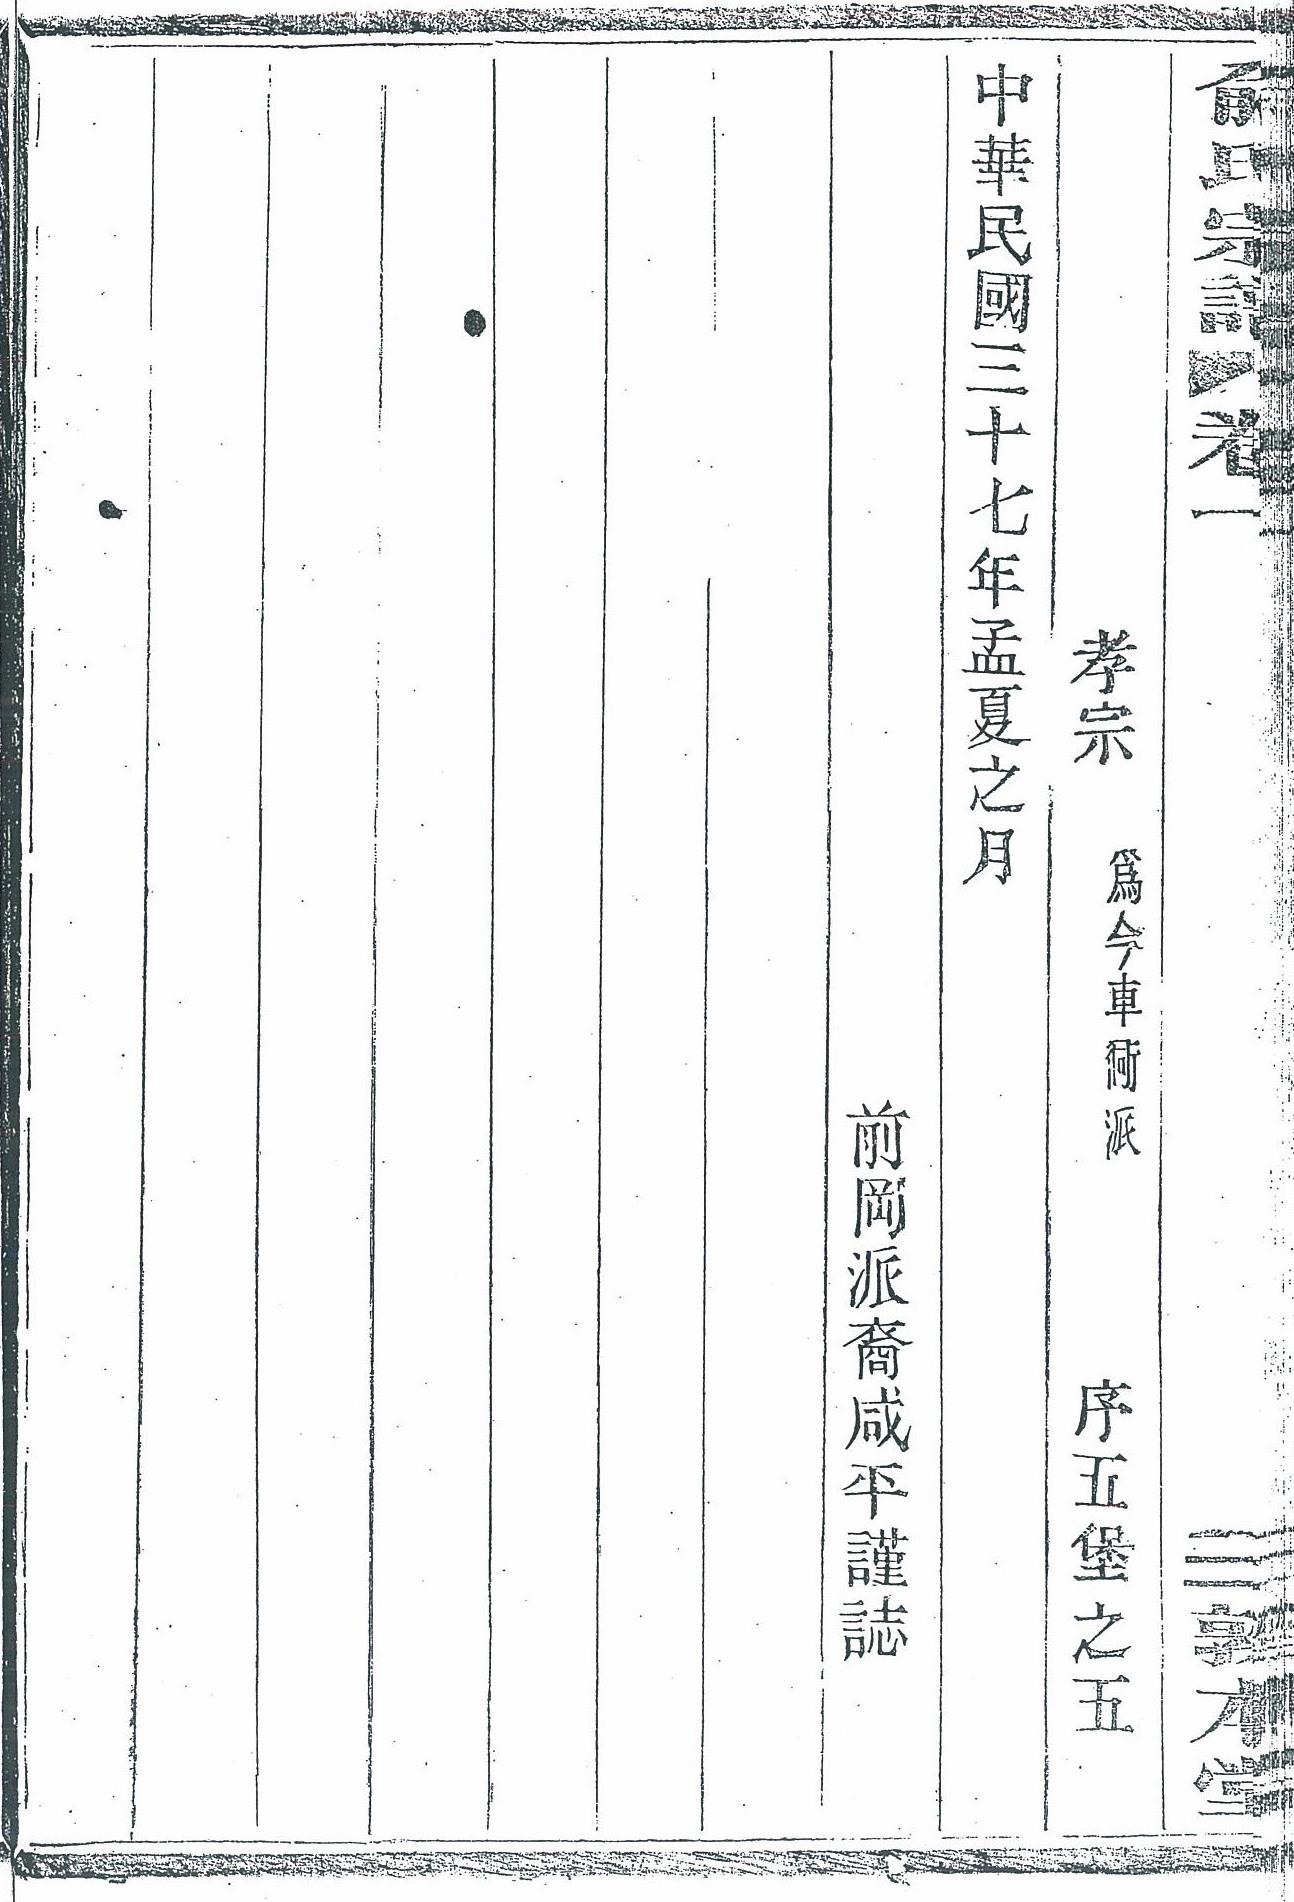 俞氏宗譜 卷一 三 敦本堂
孝宗 爲今車衕派 序五堡之五
中華民國三十七年孟夏之月
前岡派裔咸平謹誌